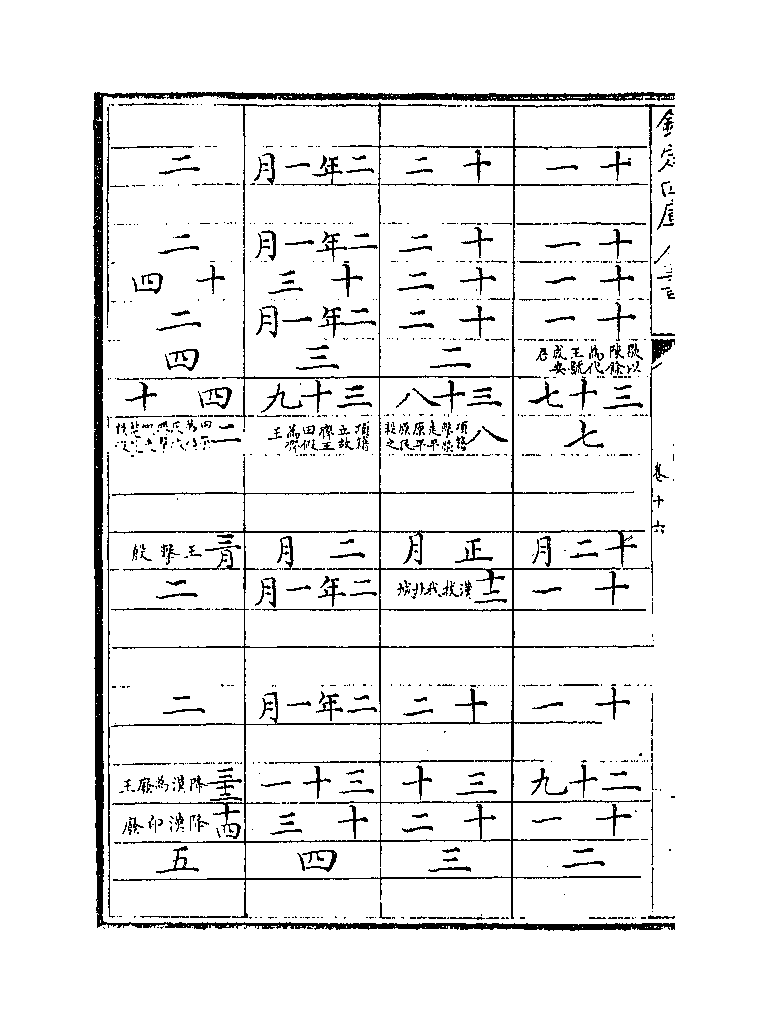 欽定四庫全書
卷十六
十一
十一
十一
十一
歇以陳餘為代王號成安君
三十七
七
十二月
十一
十一
二十九
十一
二
十二
十二
十二
十二
二
三十八
八項籍擊榮走平原平原民殺之
正月
十二漢拔我北地
十二
三十
十二
三
二年一月
二年一月
十三
二年一月
三
三十九
項籍立故齊王田假為齊王
二月
二年一月
二年一月
三十一
十三
四
二
二
十四
二
四
四十
二
三月王擊殷
二
二
三十二降漢為廢王
十四降漢卬廢
五